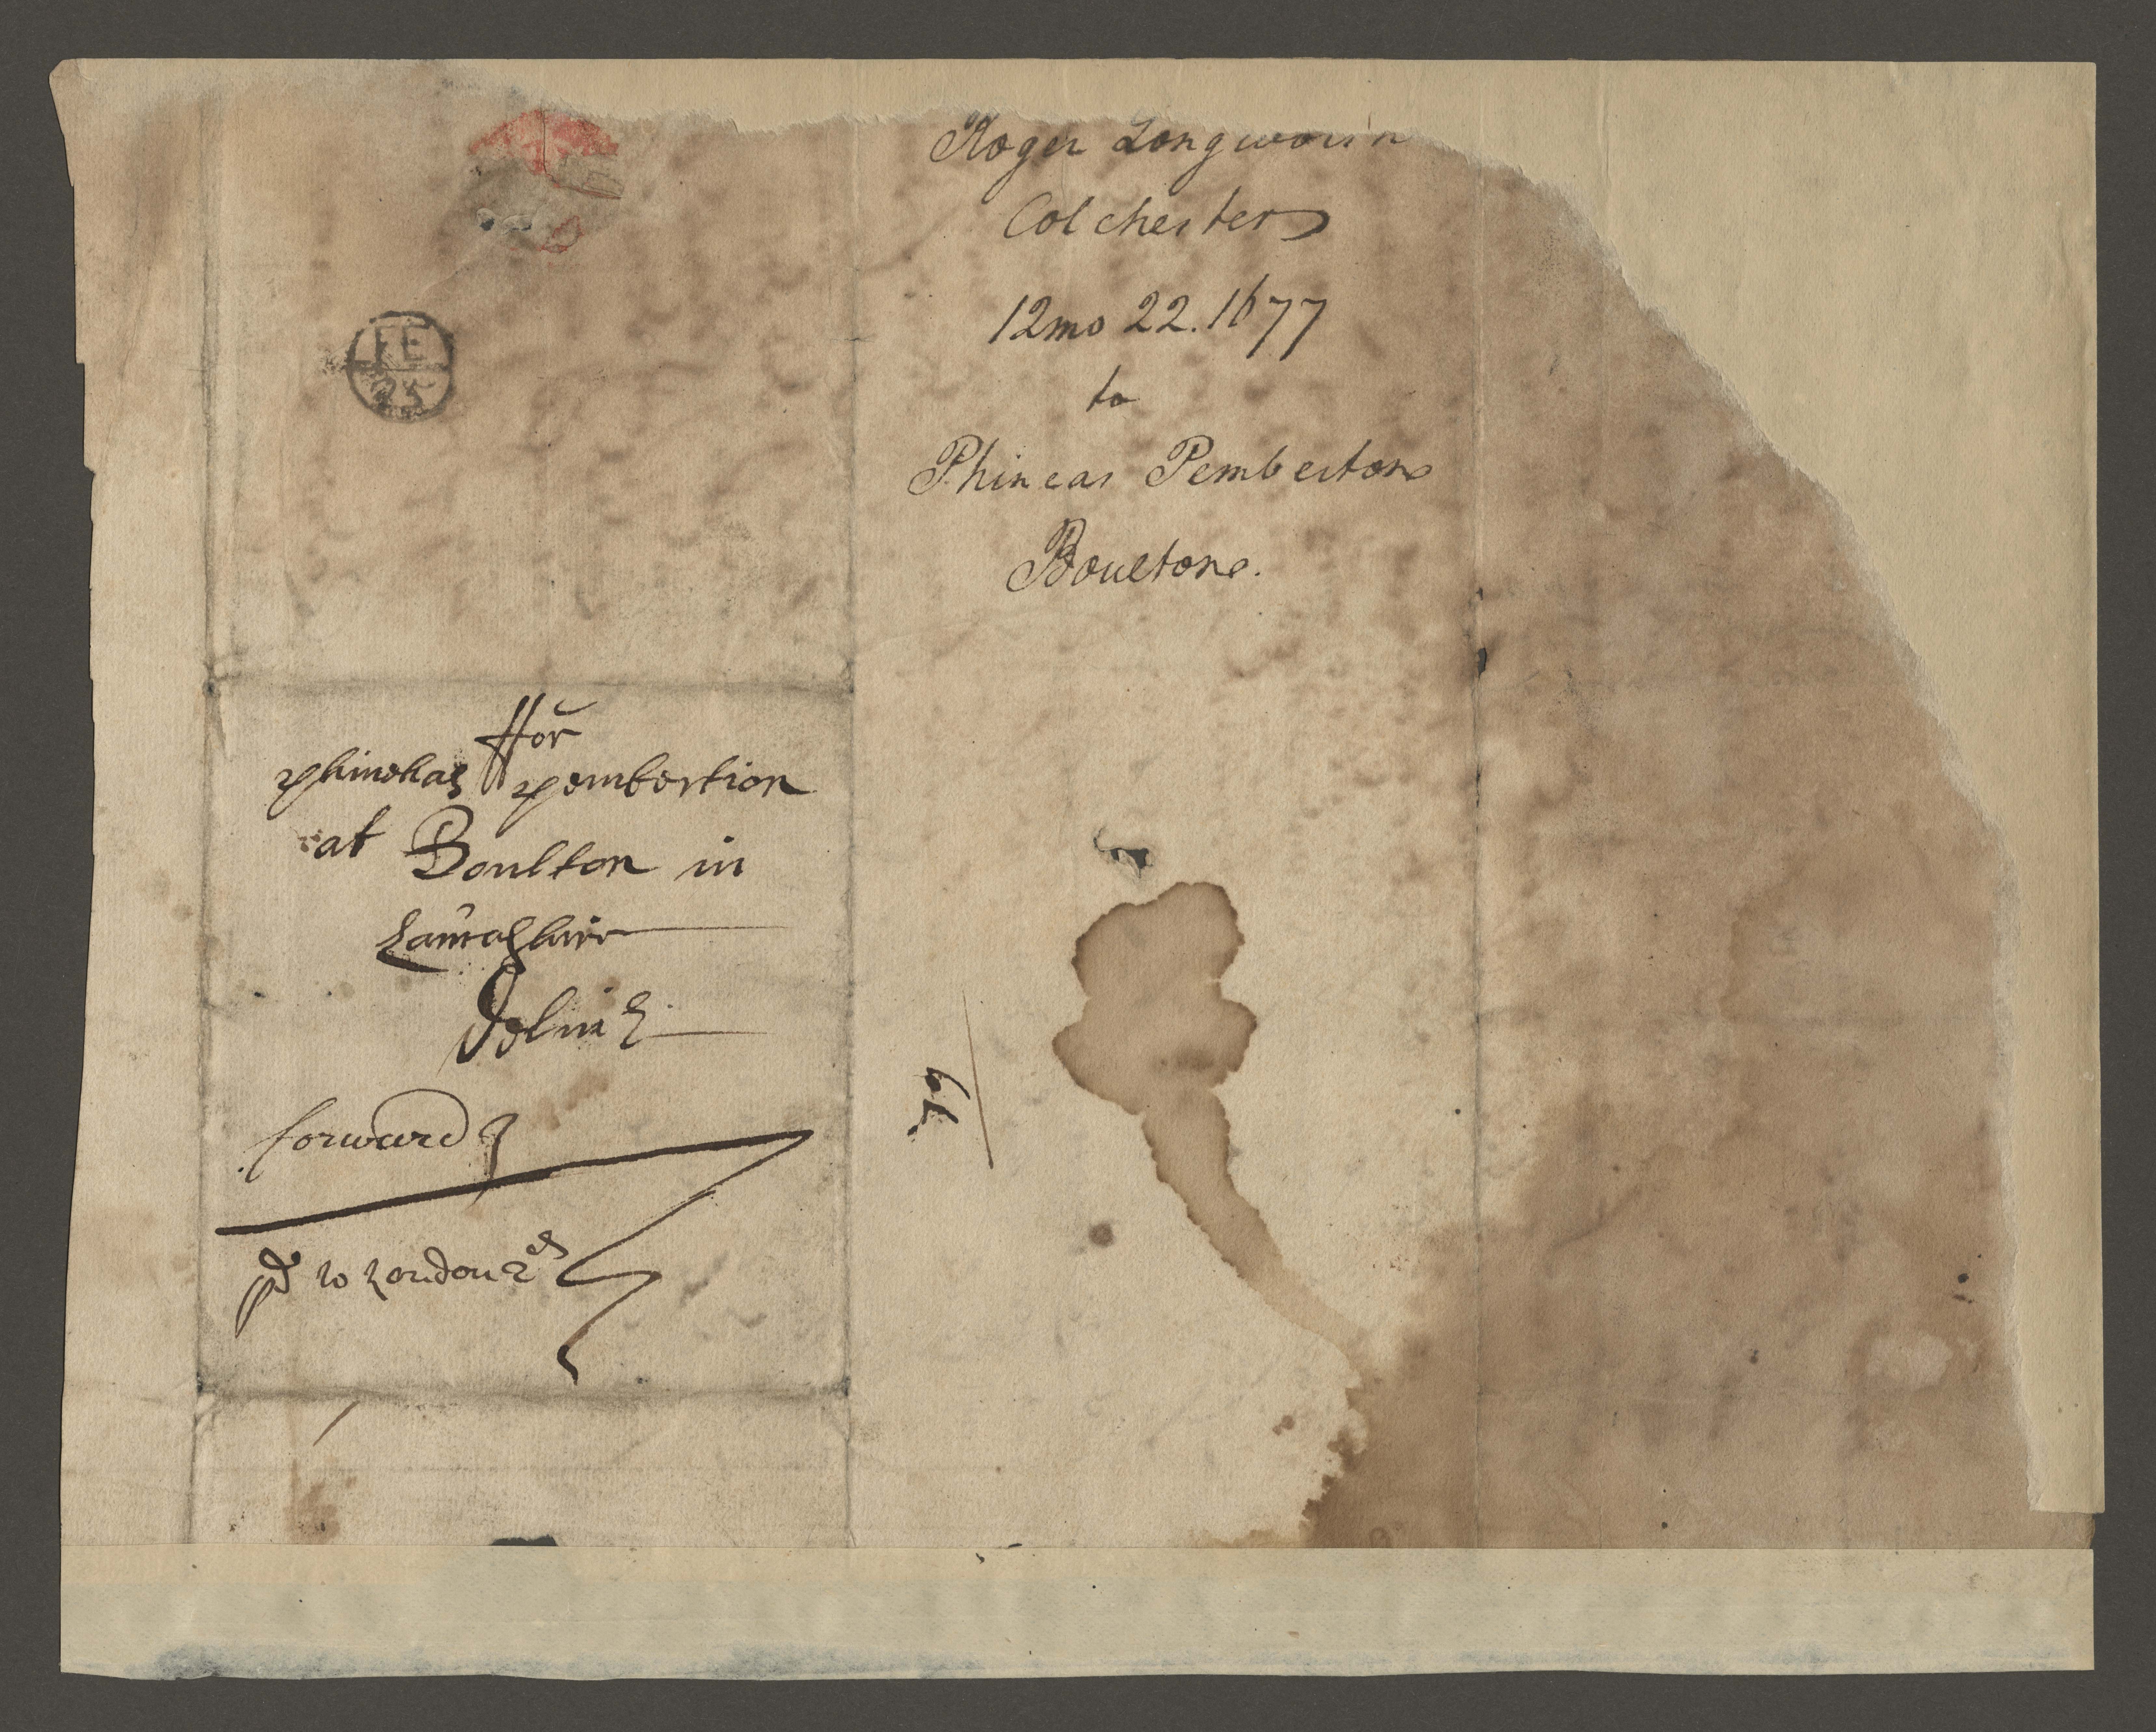 Roger Longworth
Colchester
12mo 22. 1677
to
Phineas Pemberton
Boulton.
FE
25
ffor
Phinehas Pembertion
at Boulton in
Lancashire
Deliver
forward
pd to London 2d
79